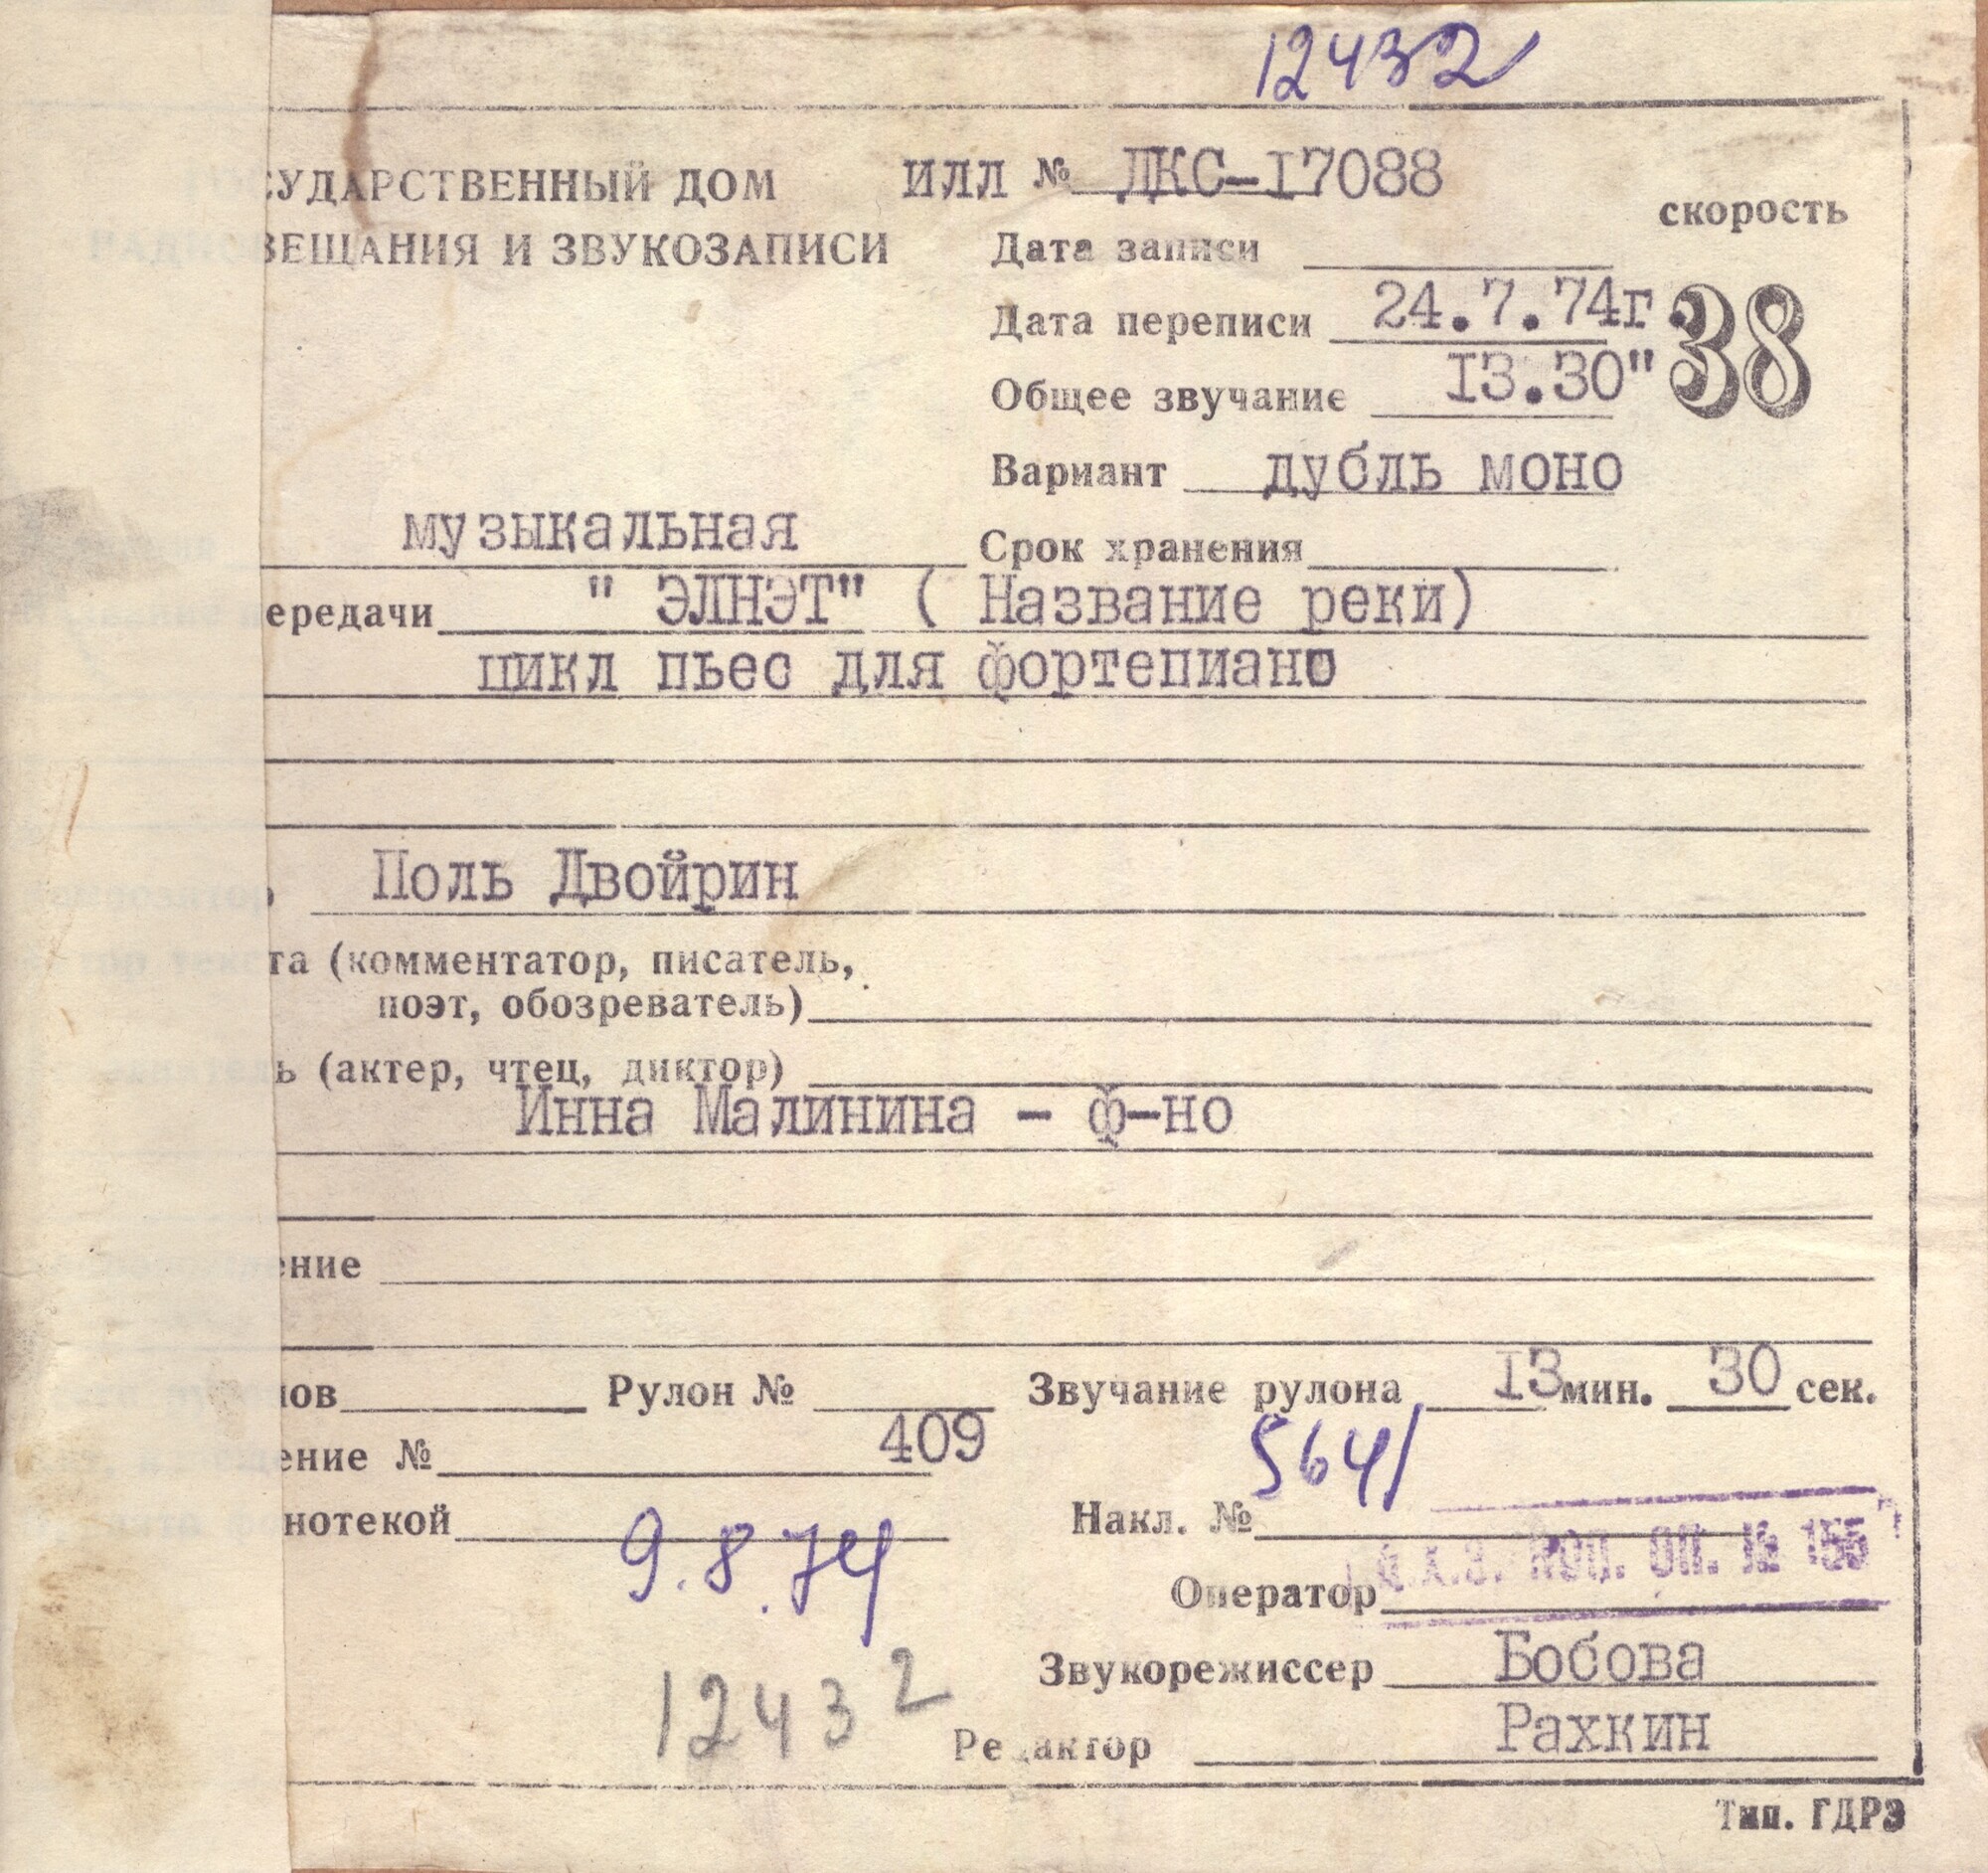 12432
СУДАРСТВЕННЫЙ ДОМ
ВЕЩАНИЯ И ЗВУКОЗАПИСИ
ИЛЛ № ДКС-I7088
скорость
38
Дата записи
Дата переписи 24.7.74г.
Общее звучание I3.30"
Вариант дубль моно
музыкальная
Срок хранения
ередачи " ЭЛНЭТ" ( Название реки)
цикл пьес для фортепиано
Поль Двойрин
та (комментатор, писатель,
поэт, обозреватель)
ь (актер, чтец, диктор)
Инна Малинина - ф-но
ение
ов Рулон № Звучание рулона I3 мин. 30 сек.
ение № 409
5641
нотекой 9.8.74
Накл. №
оп. № 155
Оператор
Звукорежиссер Бобова
12432
Редактор Рахкин
Тип. ГДРЗ